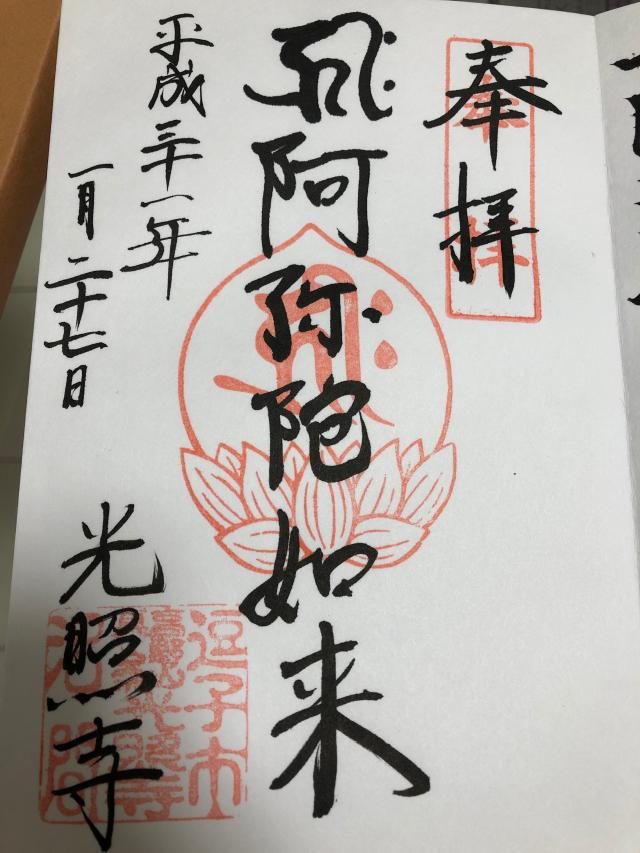 奉拝
阿弥陀如来
平成三十一年
一月二十七日
光照寺
奉拝
逗子市
沼間